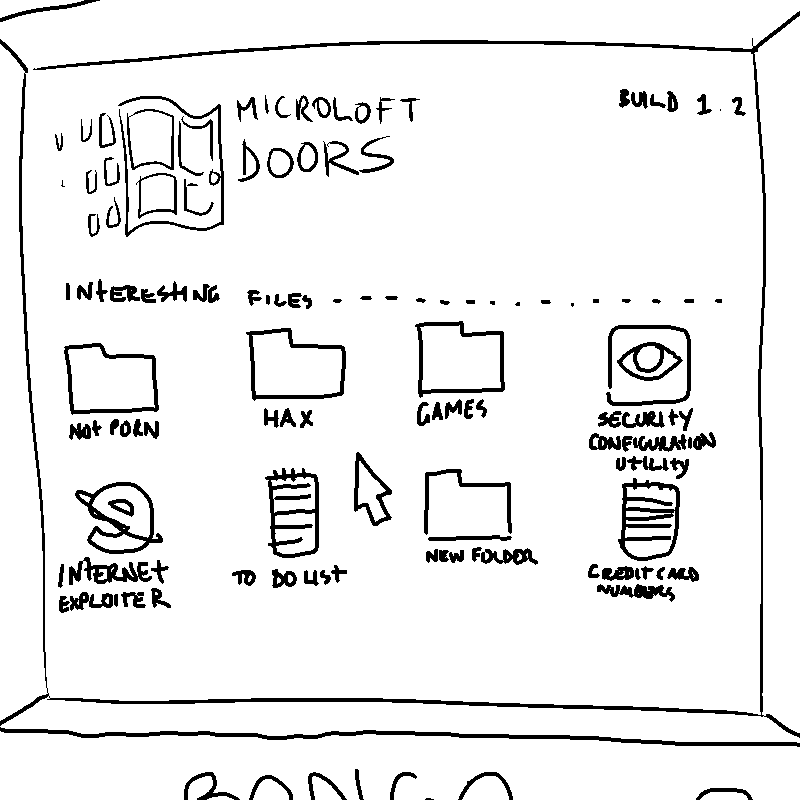 MICROLOFT
DOORS
BUILD 1.2
INTERESTING FILES
NOT PORN
HAX
GAMES
SECURITY
CONFIGURATION
UTILITY
INTERNET
EXPLOITER
TO DO LIST
NEW FOLDER
CREDIT CARD
NUMBERS